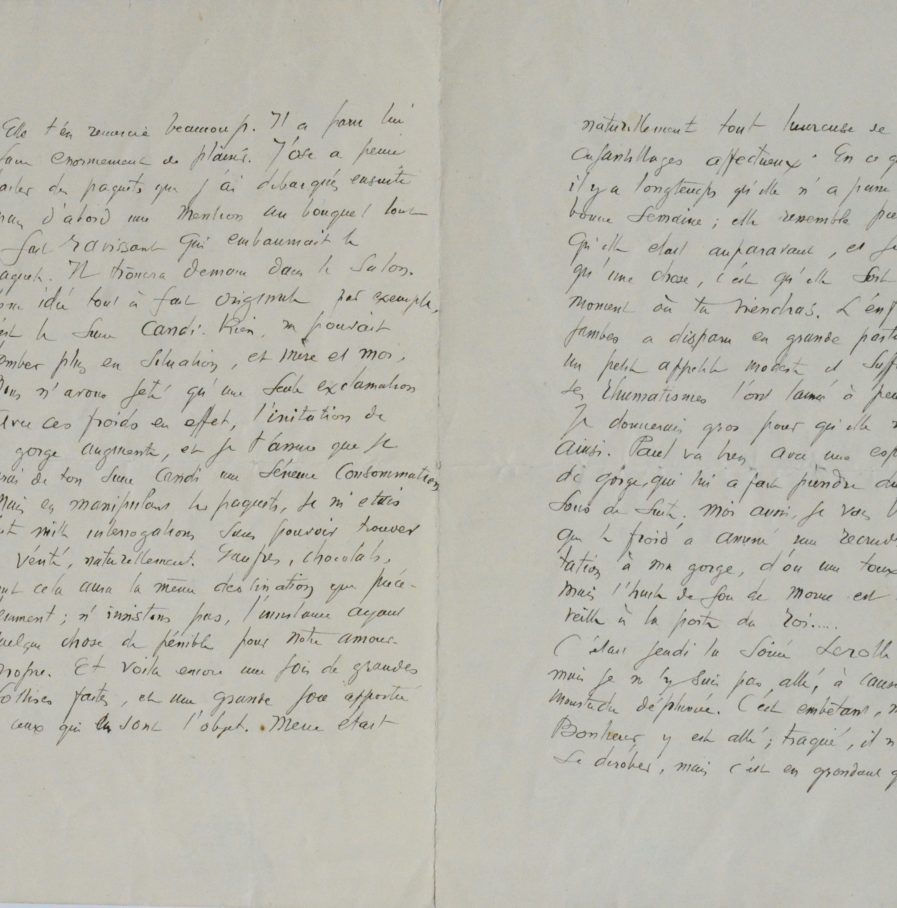 Elle t'en remercie beaucoup. Il a paru lui
faire enormement de plaisir. J'ose a peine
parler des paquets que j'ai debarqués ensuite
mais d'abord une mention au bouquet tout
fait ravissant qui embaumait le
paquet. Il trônera demain dans le Salon.
une idée tout à fait originale par exemple,
est le Sucre Candi. Rien ne pouvait
tomber plus en situation, et mère et moi,
nous n'avons jeté qu'une seule exclamation
avec ces froids en effet, l'irritation de
gorge augmente, et je t'assure que je
ferais de ton Sucre Candi une sérieuse Consommation
Mais en manipulant les paquets, je m'étais
fait mille interrogations sans pouvoir trouver
vérité, naturellement. Gaufres, chocolats,
tout cela aura la même destination que précé-
demment ; n'insistons pas, l'insistance ayant
quelque chose de pénible pour notre amour
propre. Et voilà encore une fois de grandes
faites, et une grande joie apportée
ceux qui en sont l'objet. Mère etait
naturellement tout heureuse de
enfantillages affectueux. En ce q
il y a longtemps qu'elle n'a passé
bonne Semaine ; elle ressemble
qu'elle etait auparavant, et je
qu'une chose, c'est qu'elle soit
moment où tu viendras. L'enf
jambes a disparu en grande parti
un petit appetit modeste et suff
ses rhumatismes l'ont laissée à peu
Je donnerais gros pour qu'elle
Ainsi. Paul va bien avec une esp
de gorge qui lui a fait prendre du
Sous de Suite. Moi aussi, je vous
que le froid a amené une recrud
tation à ma gorge, d'où une toux
mais l'huile de foie de morue est
veille à la porte du roi....
C'était jeudi la Soirée Lerolle
mais je n'y suis pas allé, à cause
moustache défrisée. C'est embêtant,
Bonheur y est allé ; traqué, il n
Se dérober, mais c'est en grondant q